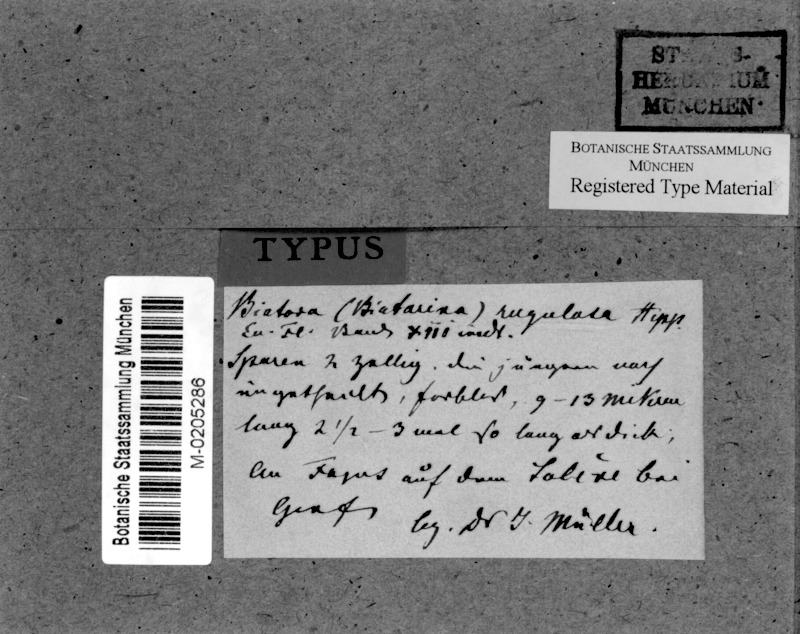 STAATS-
HERBARIUM
MÜNCHEN
BOTANISCHE STAATSSAMMLUNG
MÜNCHEN
Registered Type Material
TYPUS
Botanische Staatssammlung München
M-0205286
Biatora (Biatorina) rugulosa Hepp.
Eu. Fl. Band XIII
Sporen 2 zellig, die jüngern noch
ungetheilt, farblos, 9-13 mikrm
lang 2 1/2 - 3 mal so lang als dick,
an Fagus auf dem Salève bei
Genf
leg. Dr J. Müller.